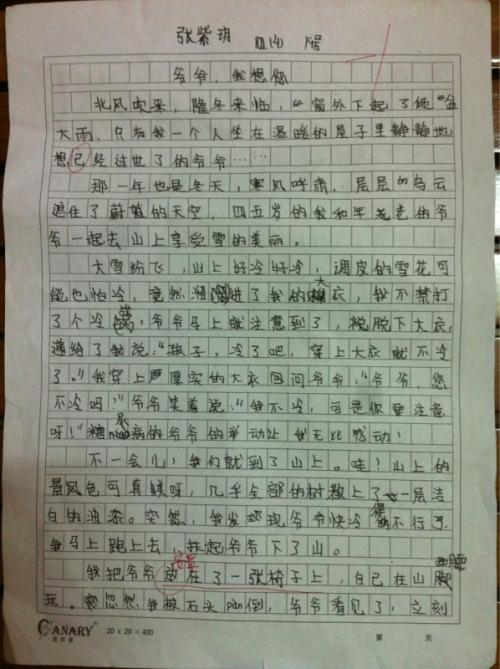 张紫玥 四(4) 19号
爷爷,我想您
北风吹来,隆冬来临,窗外下起了倾盆
大雨,只有我一个人坐在温暖的屋子里静静地
想已经过世了的爷爷……
那一年也是冬天,寒风呼啸,层层的乌云
遮住了蔚蓝的天空,四五岁的我和年老的爷
爷一起去山上享受雪的美丽。
大雪纷飞,山上好冷好冷,调皮的雪花可
能也怕冷,竟然溜进了我的大衣,我不禁打
了个冷,爷爷马上就注意到了,脱下大衣,
递给了我说:“孩子,冷了吧,穿上大衣就不冷
了。”我穿上厚厚实的大衣回问爷爷:“爷爷,您
不冷吗?”爷爷笑着说:“我不冷,可是你要注意
呀!”糖尿病的爷爷的举动让我无比感动!
不一会儿,我们就到了山上。哇!山上的
景风色可真美呀,几乎全部的树数上了一层洁
白的油漆。突然,我发现爷爷快冷得不行了,
我马上跑上去,扶起爷爷下了山。
我把爷爷放在了一张椅子上,自己在山脚
玩。忽然我被石头pan倒,爷爷看见了,立刻
CANARY 20 x 20 = 400 第 页